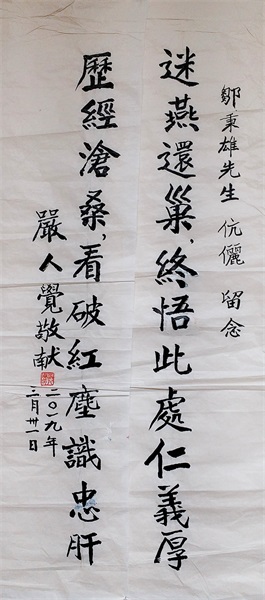 鄒秉雄先生 伉儷 留念
迷燕還巢,終悟此處仁義厚
歷經滄桑,看破紅塵識忠肝
嚴人覺敬献
二〇一九年
二月廿一日